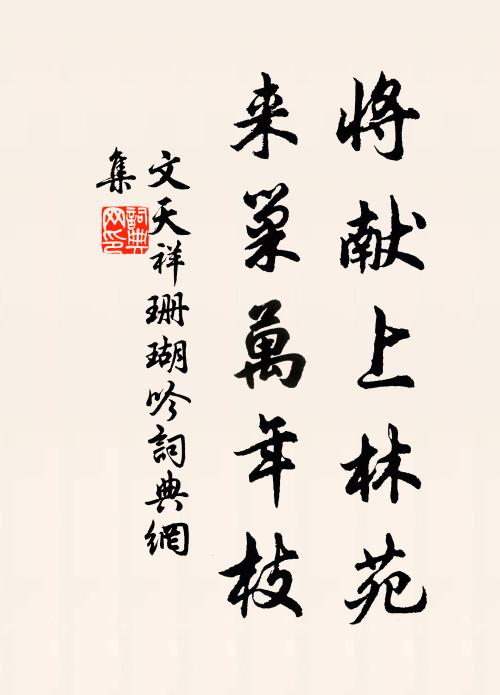 将献上林苑
来巢萬年枝
文天祥珊瑚吟詞典網
集
詞典网印